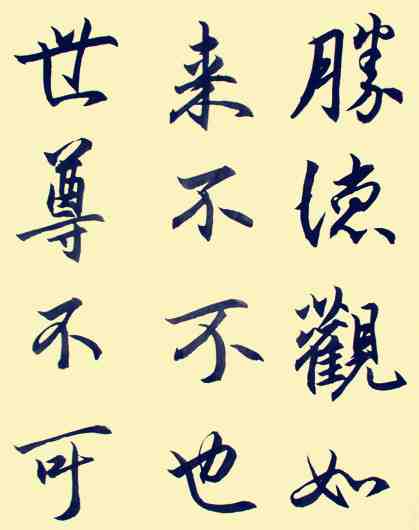 勝德觀如
来不不也
世尊不可